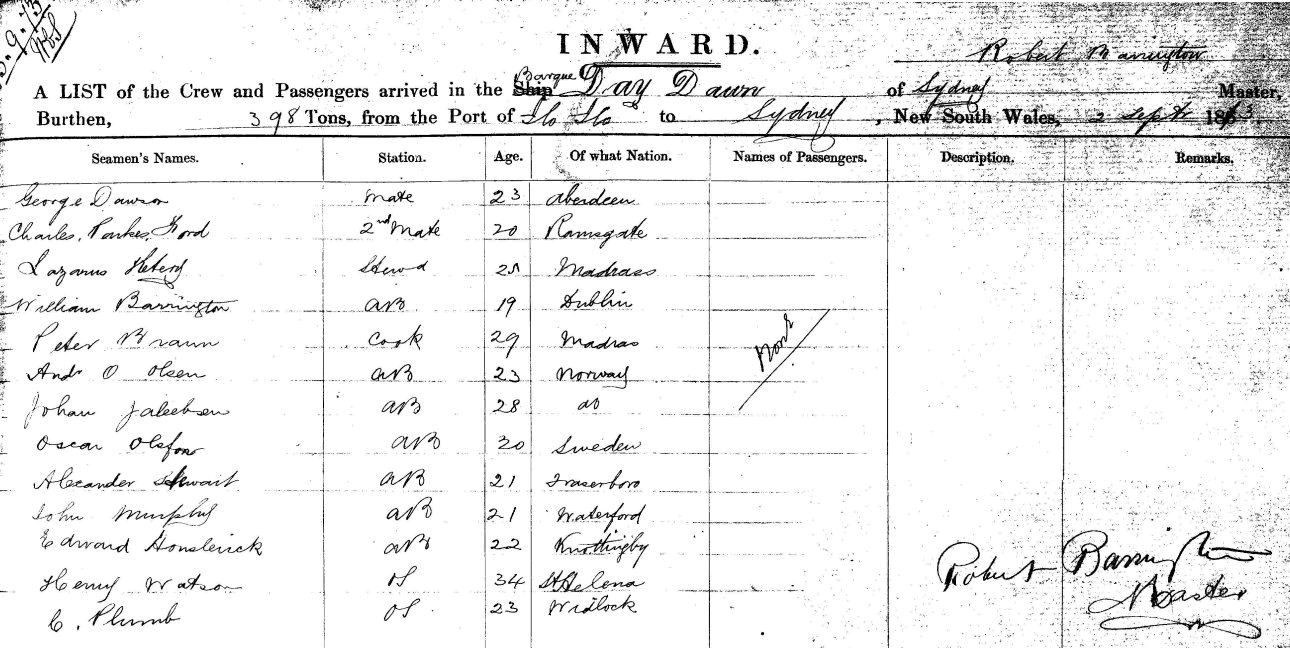 INWARD.
Robert Barrington
Barque
A LIST of the Crew and Passengers arrived in the Ship Day Dawn of Sydney Master,
Burthen, 398 Tons, from the Port of Ilo Ilo to Sydney, New South Wales, 2 Septr 18
Seamen's Names. Station. Age. Of what Nation. Names of Passengers. Description. Remarks.
George Dawson mate 23 Aberdeen
Charles Parkes Ford 2nd mate 20 Ramsgate
Lazarus Stewd Madrass
William Barrington AB 19 Dublin
Peter Braun Cook 29 Madras
None
Andr O Olsen AB 23 Norway
Johan AB 28 do
Oscar AB Sweden
Alexander Stewart AB 21 Fraserboro
John Murphy AB 21 Waterford
Edward AB 22 Knottingby
Henry Watson OS 34 St Helena
C. Plumb OS 23
Robert Barrington
Master